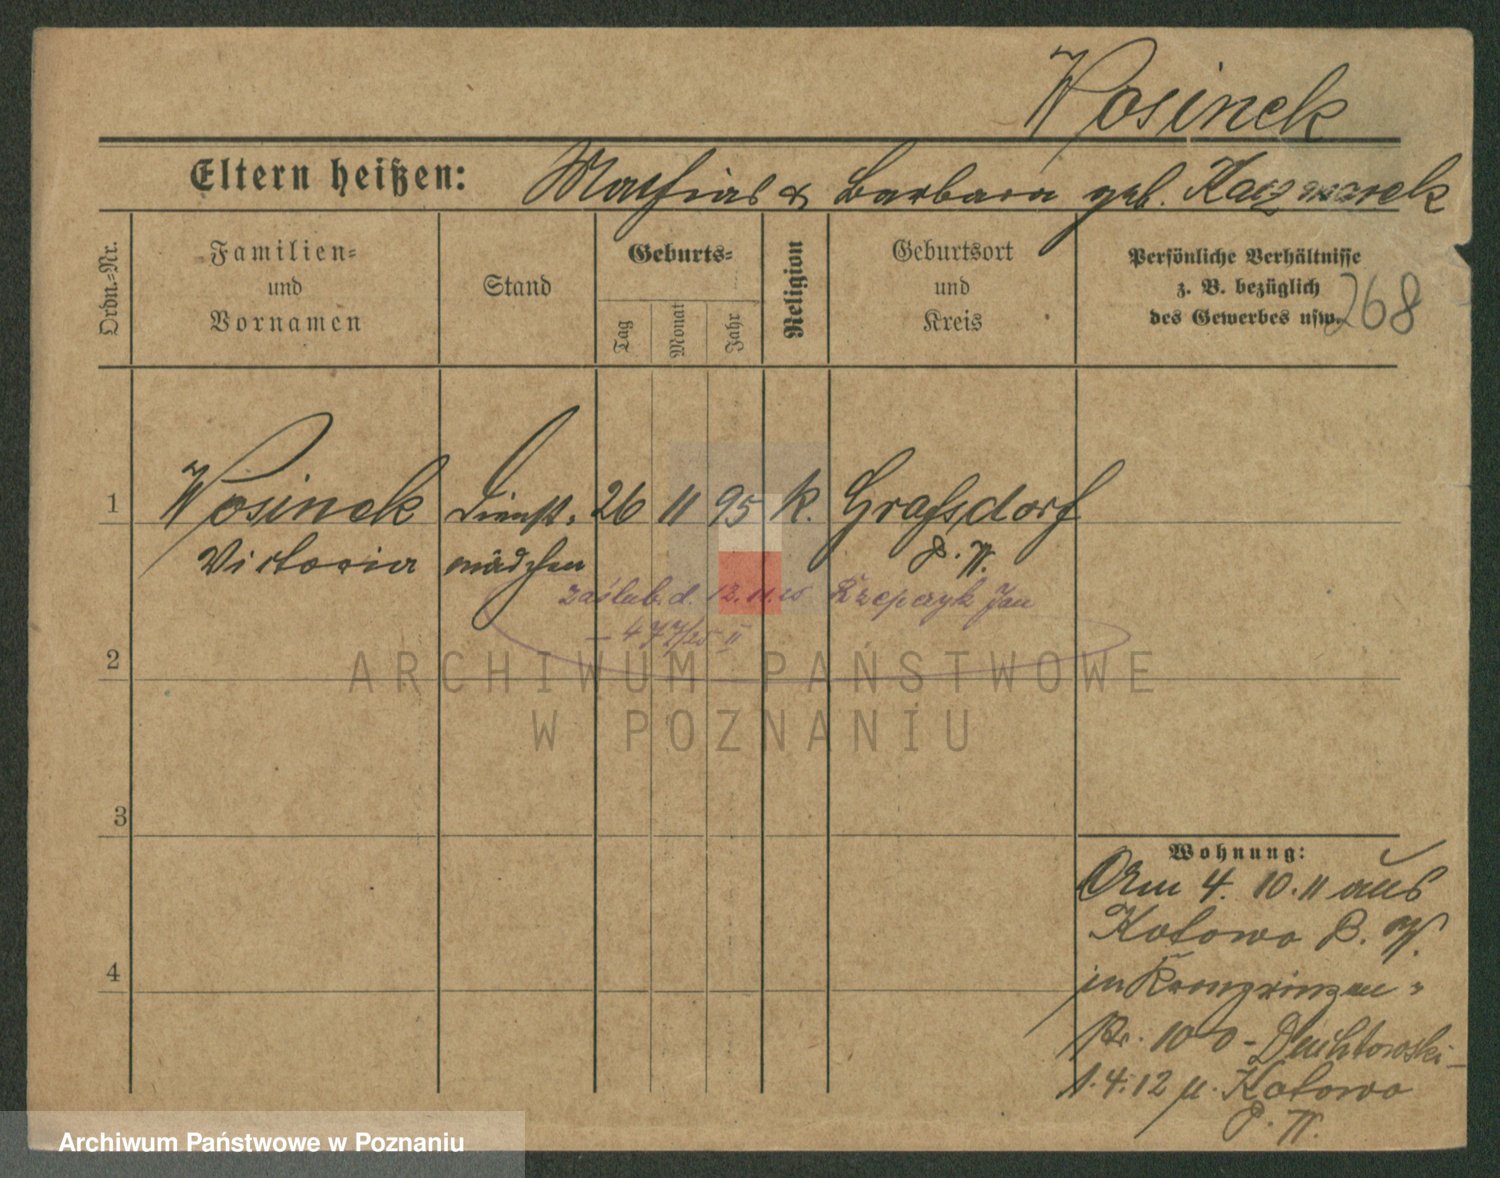 Wosinek
Eltern heißen: Mathias & Barbara geb. Kaczmarek
Ordn.-Nr.
Familien-
und
Vornamen
Stand
Geburts-
Tag
Monat
Jahr
Religion
Geburtsort
und
Kreis
Persönliche Verhältnisse
z. B. bezüglich
des Gewerbes usw.
268
1 Wosinek Dienst- 26 11 95 k. Grafsdorf
Victoria mädchen P. W.
zaślub. d. 12.11.25 Rzepczyk Jan
– 477/25 II
2
3
4
Wohnung:
Am 4. 10. 11 aus
Kotowo P. W.
in Kronprinzen-
str. 100 -
1.4.12 n. Kotowo
P. W.
ARCHIWUM PAŃSTWOWE
W POZNANIU
Archiwum Państwowe w Poznaniu